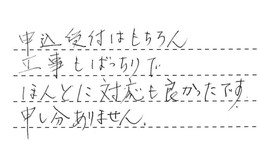 申込受付はもちろん
工事もばっちりで
ほんとに対応も良かったです
申し分ありません。